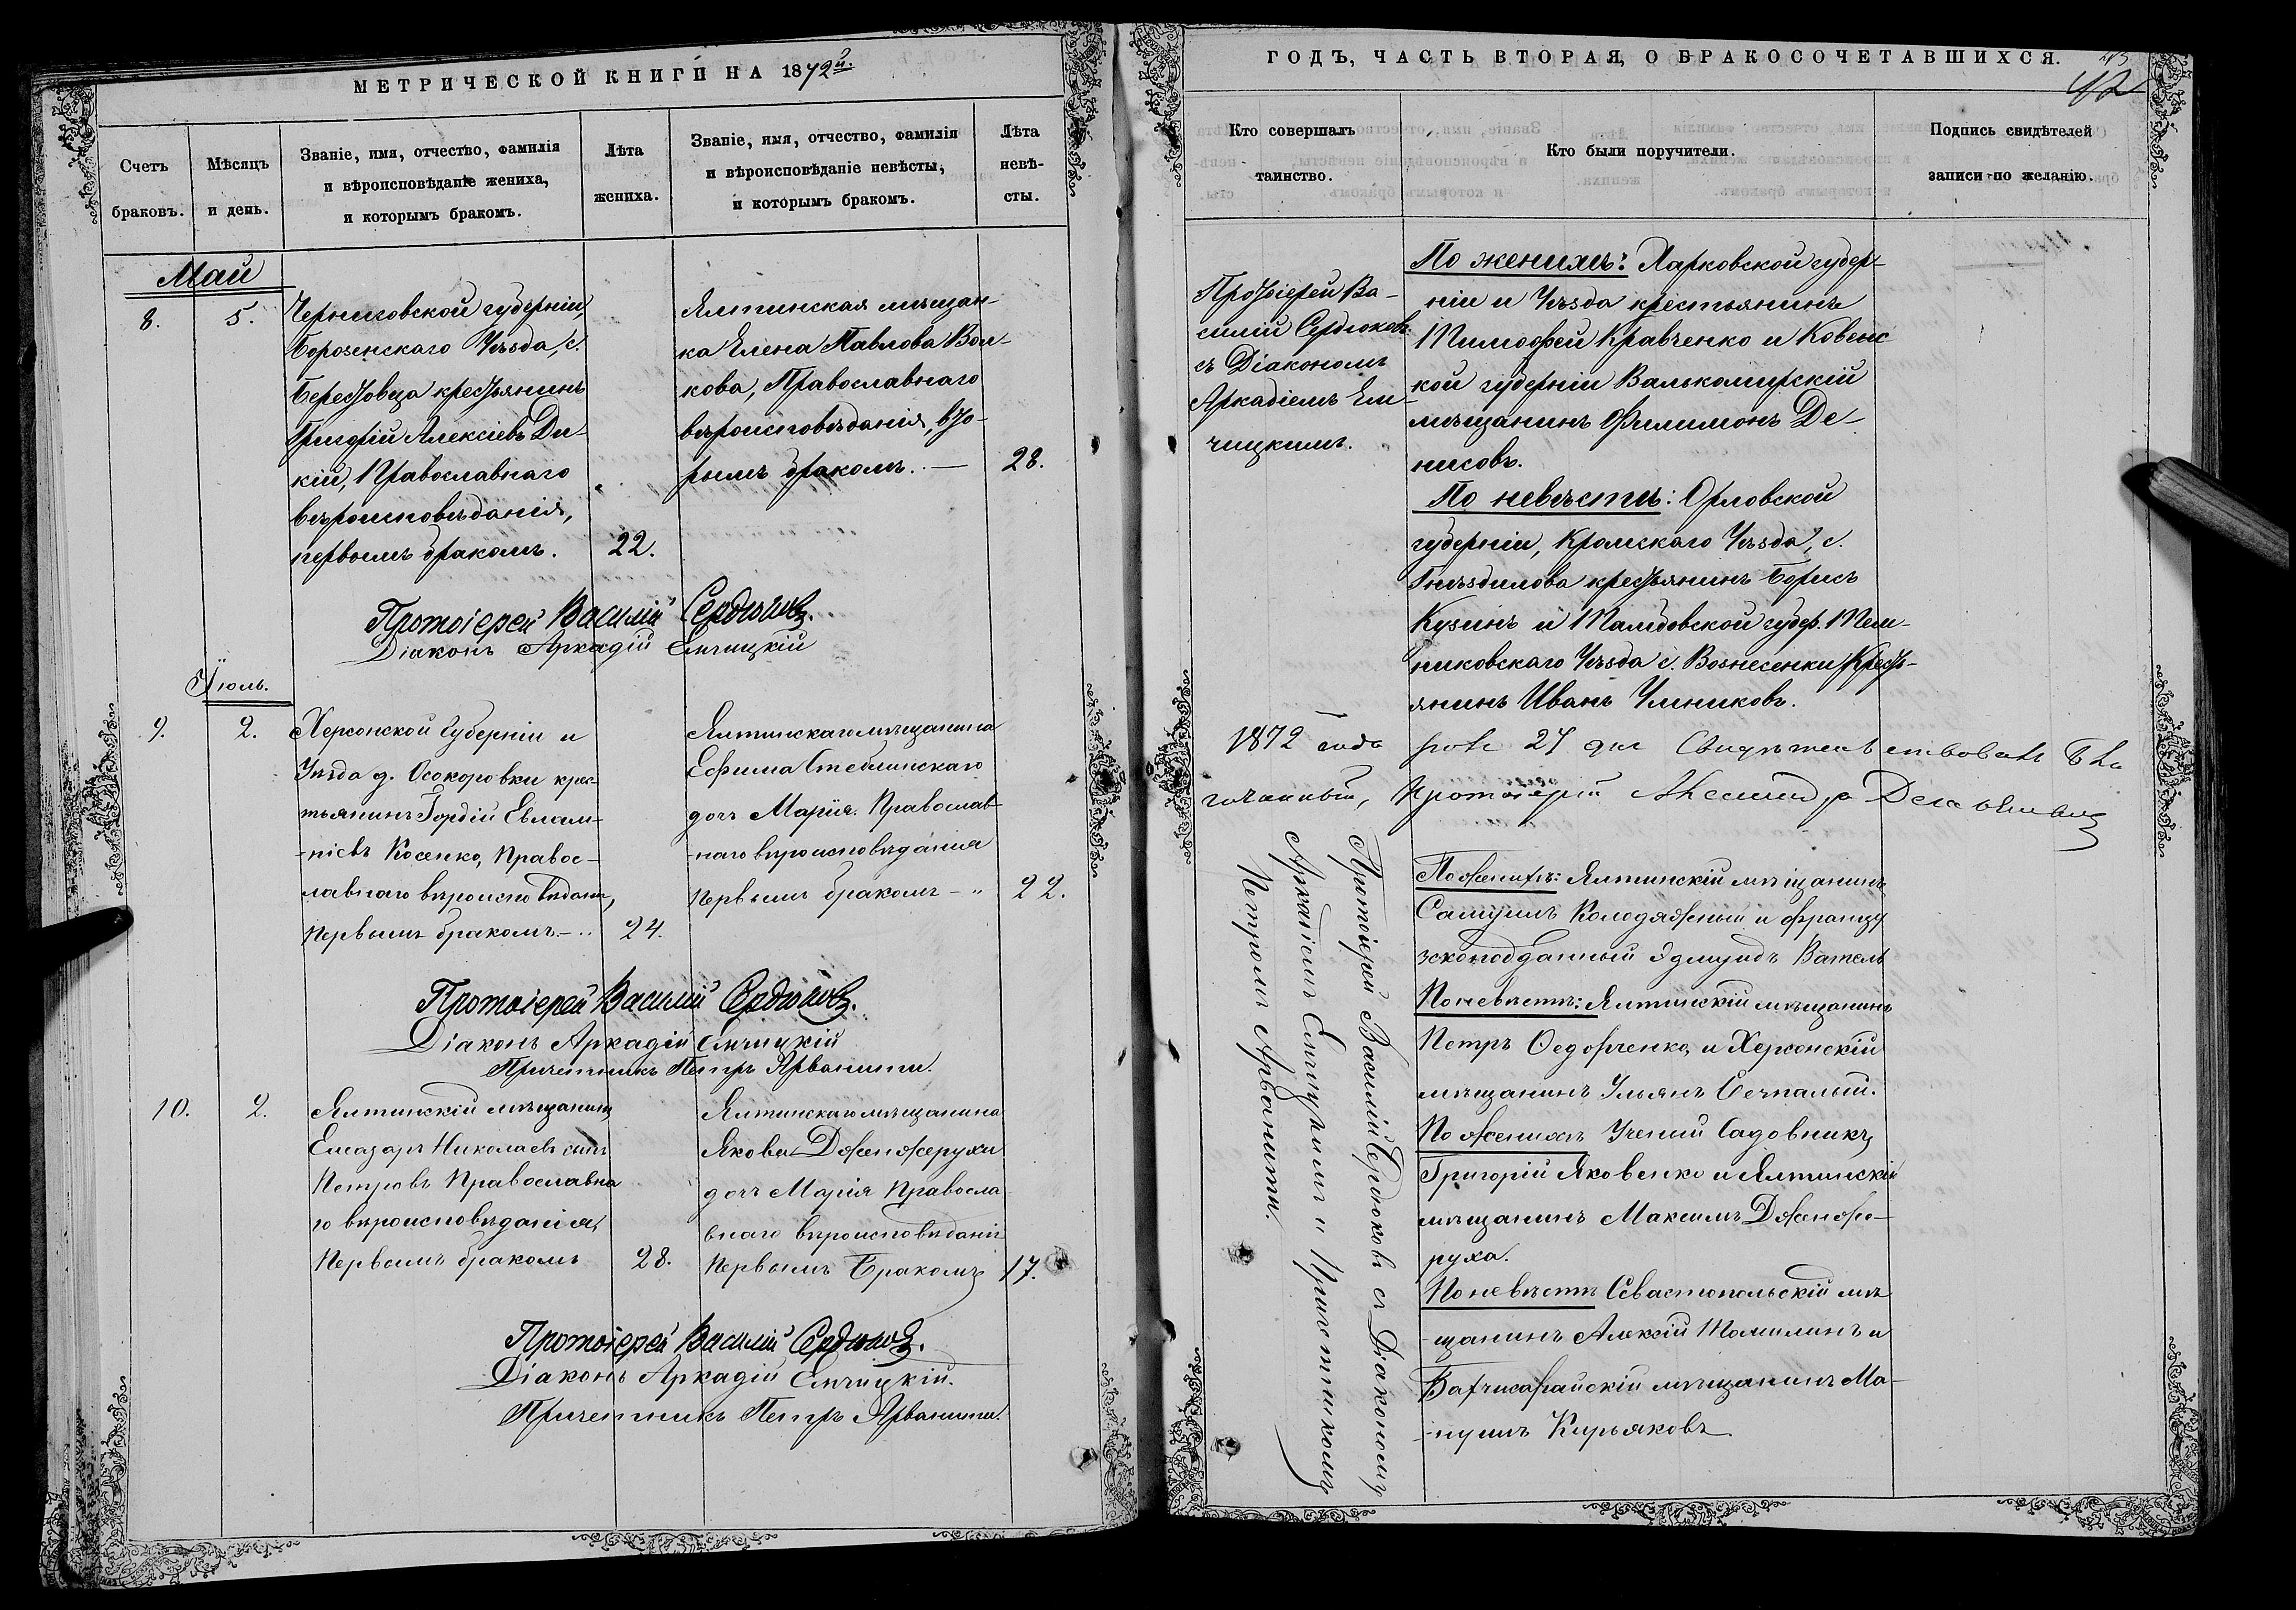 МЕТРИЧЕСКОЙ КНИГИ НА 1872й.
Счетъ браковъ.
Мѣсяцъ и день.
Званіе, имя, отчество, фамилія
и вѣроисповѣданіе жениха,
и которымъ бракомъ.
Лѣта
жениха.
Званіе, имя, отчество, фамилія
и вѣроисповѣданіе невѣсты,
и которымъ бракомъ.
Лѣта
невѣ-
сты.
Май
8. 5.
Черниговской губерніи
Борозенскаго Уѣзда, с.
Берестовца крестьянинъ
Григорій Алексіевъ Ди-
кій, Православнаго
вѣроисповѣданія,
первымъ бракомъ. 22.
Ялтинская мѣщан-
ка Елена Павлова Вол-
кова, Православнаго
вѣроисповѣданія, вто-
рымъ бракомъ. — 28.
Протоіерей Василій Сердюковъ.
Діаконъ Аркадій Емчицкій
Іюль.
9. 2.
Херсонской Губерніи и
Уѣзда д. Осокоровки крес-
тьянинъ Гордій Евлам-
-піевъ Косенко, Правос-
лавнаго вѣроисповѣданія,
Первымъ бракомъ. — 24.
Ялтинскаго мѣщанина
Ефима Стеблинскаго
дочь Марія. Православ-
-наго вѣроисповѣданія
Первымъ бракомъ — 22.
Протоіерей Василій Сердюковъ.
Діаконъ Аркадій Емчицкій
Причетникъ Петръ Арванити.
10. 2.
Ялтинскій мѣщанинъ
Елеазаръ Николаевъ сынъ
Петровъ Православна
го вѣроисповѣданія,
Первымъ бракомъ 28.
Ялтинскаго мѣщанина
Якова Дженжерухи
дочь Марія Правосла
внаго вѣроисповѣданія
Первымъ Бракомъ 17.
Протоіерей Василій Сердюковъ.
Діаконъ Аркадій Емчицкій.
Причетникъ Петръ Арванити.
ГОДЪ, ЧАСТЬ ВТОРАЯ, О БРАКОСОЧЕТАВШИХСЯ.
42
Кто совершалъ
таинство.
Кто были поручители.
Подпись свидѣтелей
записи по желанію.
Протоіерей Ва-
силій Сердюковъ
съ Діакономъ
Аркадіемъ Ем-
чицкимъ.
По женихѣ: Харковской губер-
ніи и Уѣзда крестьянинъ
Тимофей Кравченко и Ковенс
кой губерніи Валькомирскій
мѣщанинъ Филимонъ Де-
нисовъ.
По невѣстѣ: Орловской
губерніи, Кромскаго Уѣзда, с.
Гнѣздилова крестьянинъ Борисъ
Кузинъ и Тамбовской губер. Тем-
никовскаго Уѣзда с. Вознесенки крест-
янинъ Иванъ Умниковъ.
1872 года 27 дня Свидѣтельствовалъ Бла
гочинный, Протоіерей
Протоіерей Василій Сердюковъ съ Діакономъ
Аркадіемъ Емчицкимъ и Причетникомъ
Петромъ Арванити.
По женихѣ: Ялтинскій мѣщанинъ
Самуилъ Колодяжный и францу
зскоподданный Эдмундъ Ватель
По невѣстѣ: Ялтинскій мѣщанинъ
Петръ Федорченко, и Херсонскій
мѣщанинъ Ульянъ Сечпалый.
По женихѣ Ученый Садовникъ
Григорій Яковенко и Ялтинскій
мѣщанинъ Максимъ Дженже-
руха.
По невѣстѣ Севастопольскій мѣ
-щанинъ Алексій Томилинъ и
Бахчисарайскій мѣщанинъ Ма-
-нуилъ Кирьяковъ